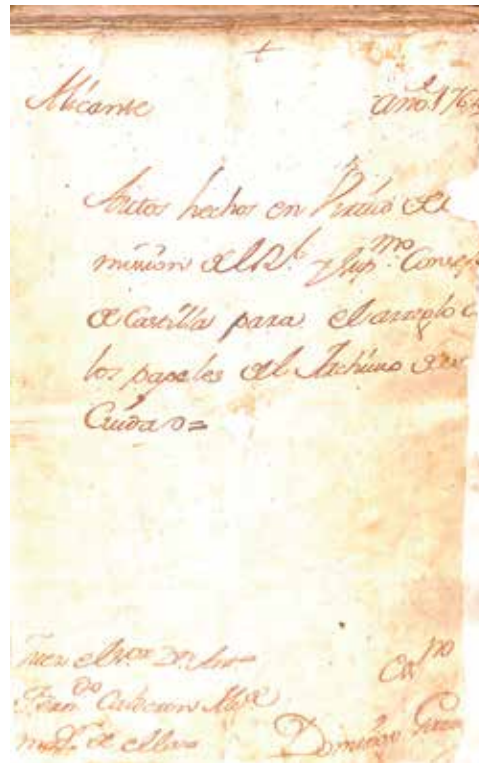 Alicante año 176
Autos hechos en Virtud de
mision del Rl. y Supmo. Consejo
de Castilla para el arreglo d
los papeles del Archivo de
Ciudad=
Juez el Sor. Dn.
Ferndo. Calderon Alce
mor. de ella Domingo